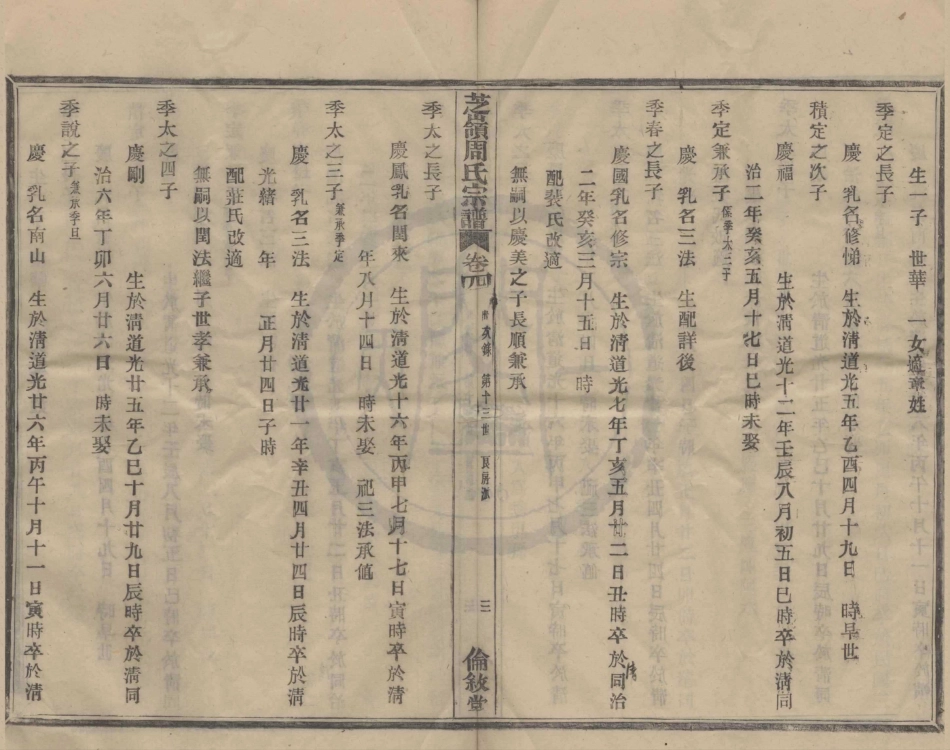 生一子 世華 一女適章姓
季定之長子
慶 乳名修悌 生於清道光五年乙酉四月十九日 時早世
積定之次子
慶福 生於清道光十二年壬辰八月初五日巳時卒於清同
治二年癸亥五月十七日巳時未娶
季定兼承子 係季太三子
慶 乳名三法 生配詳後
季春之長子
慶國乳名修宗 生於清道光七年丁亥五月廿二日丑時卒於清同治
二年癸亥三月十五日 時
配裴氏改適
無嗣以慶美之子長順兼承
芝嶺周氏宗譜 卷四 第十三世 良房派 三 倫敘堂
季太之長子
慶鳳乳名閏來 生於清道光十六年丙申七月十七日寅時卒於清
年八月十四日 時未娶 祀三法承值
季太之三子 兼承季定
慶 乳名三法 生於清道光廿一年辛丑四月廿四日辰時卒於清
光緒 年 正月廿四日子時
配莊氏改適
無嗣以閏法繼子世孝兼承
季太之四子
慶剛 生於清道光廿五年乙巳十月廿九日辰時卒於清同
治六年丁卯六月廿六日 時未娶
季說之子 兼承季旦
慶 乳名南山 生於清道光廿六年丙午十月十一日寅時卒於清